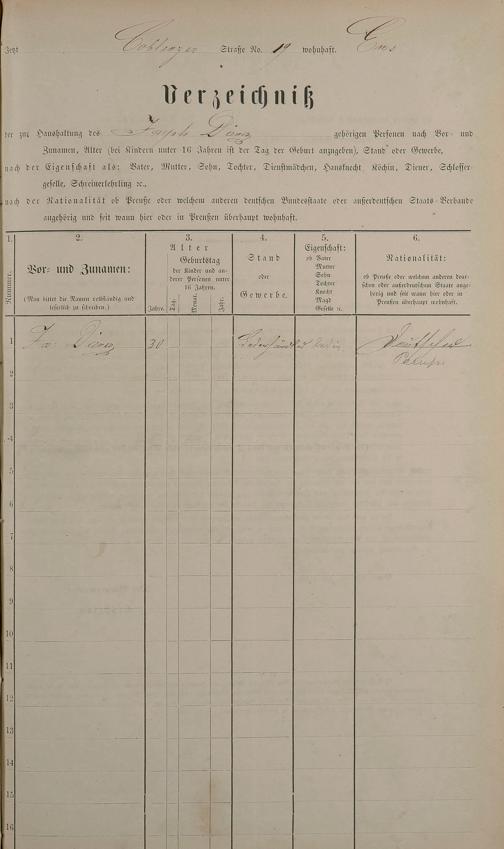 Jetzt Coblenzer Straße No. 19 wohnhaft. Ems
Verzeichniß
der zur Haushaltung des Joseph gehörigen Personen nach Vor- und
Zunamen, Alter (bei Kindern unter 16 Jahren ist der Tag der Geburt anzugeben), Stand oder Gewerbe,
nach der Eigenschaft als: Vater, Mutter, Sohn, Tochter, Dienstmädchen, Hausknecht, Köchin, Diener, Schlosser-
geselle, Schreinerlehrling ꝛc.,
nach der Nationalität ob Preuße oder welchem anderen deutschen Bundesstaate oder außerdeutschen Staats-Verbande
angehörig und seit wann hier oder in Preußen überhaupt wohnhaft.
1.
Nummer.
2.
Vor- und Zunamen:
(Man bittet die Namen vollständig und
leserlich zu schreiben.)
3.
Alter
Geburtstag
der Kinder und an-
derer Personen unter
16 Jahren.
Jahre.
Tag.
Monat.
Jahr.
4.
Stand
oder
Gewerbe.
5.
Eigenschaft:
ob Vater
Mutter
Sohn
Tochter
Knecht
Magd
Geselle ꝛc.
6.
Nationalität:
ob Preuße oder welchem anderen deut-
schen oder außerdeutschen Staate ange-
hörig und seit wann hier oder in
Preußen überhaupt wohnhaft.
1 30 Lederhändler ledig
2
3
4
5
6
7
8
9
10
11
12
13
14
15
16